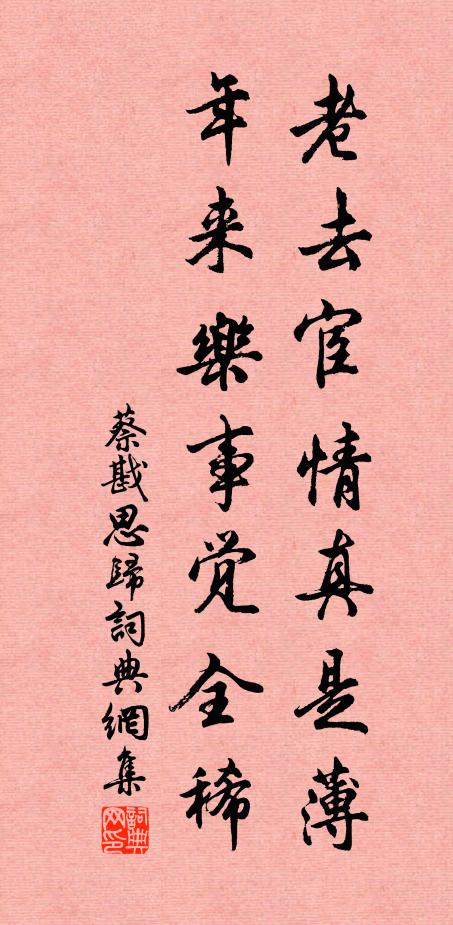 老去宦情真是薄
年来樂事覚全稀
蔡戡思歸詞典網集
詞典网印